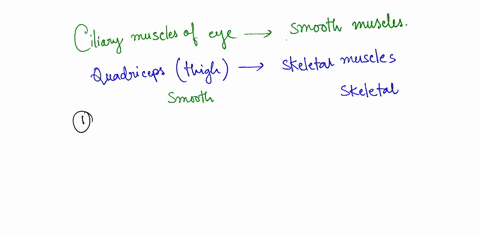 Ciliary muscles of eye → smooth muscles.
Quadriceps (thigh) → skeletal muscles
Smooth Skeletal
1